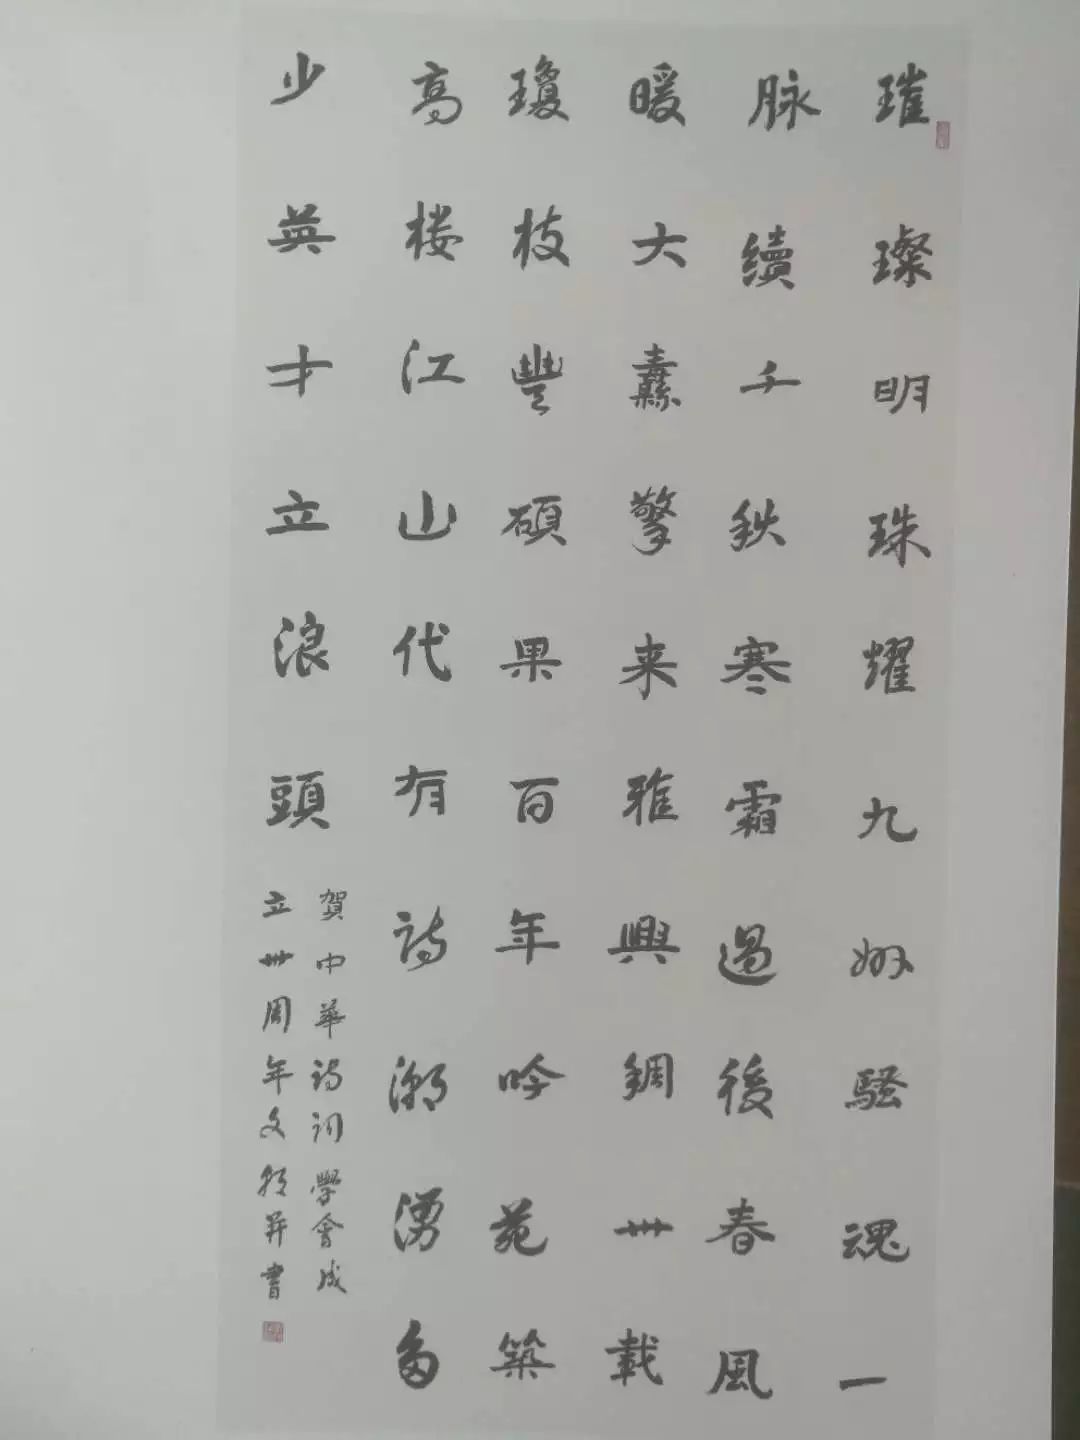 璀璨明珠耀九州騷魂一
脉續千秋寒霜過後春風
暖大纛擎来雅興稠卅載
瓊枝豐碩果百年吟苑築
高楼江山代有詩潮湧多
少英才立浪頭
賀中華詩詞學會成
立卅周年文并書